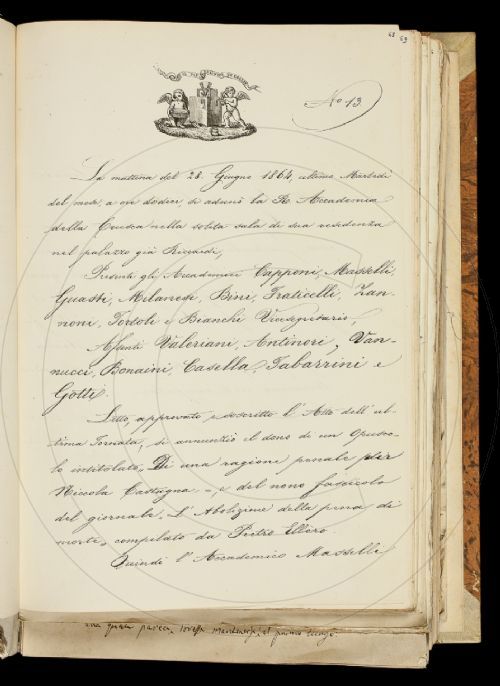 63
N.º 13
La mattina del 28 Giugno 1864, ultimo Martedì
del mese, a ore dodici si adunò la R. Accademia
della Crusca nella solita sala di sua residenza
nel palazzo già Riccardi,
Presenti gli Accademici Capponi, Masselli,
Guasti, Milanesi, Bini, Fraticelli, Zan-
noni, Tortoli e Bianchi Vicesegretario,
Assenti Valeriani, Antinori, Van-
nucci, Bonaini, Casella, Tabarrini e
Gotti.
Letto, approvato e soscritto l'Atto dell'ul-
tima Tornata, si annunziò il dono di un Opusco-
lo intitolato, Di una ragione penale per
Niccola Castagna - e del nono fascicolo
del giornale, L'Abolizione della pena di
morte, compilato da Pietro Ellero.
Quindi l'Accademico Masselli